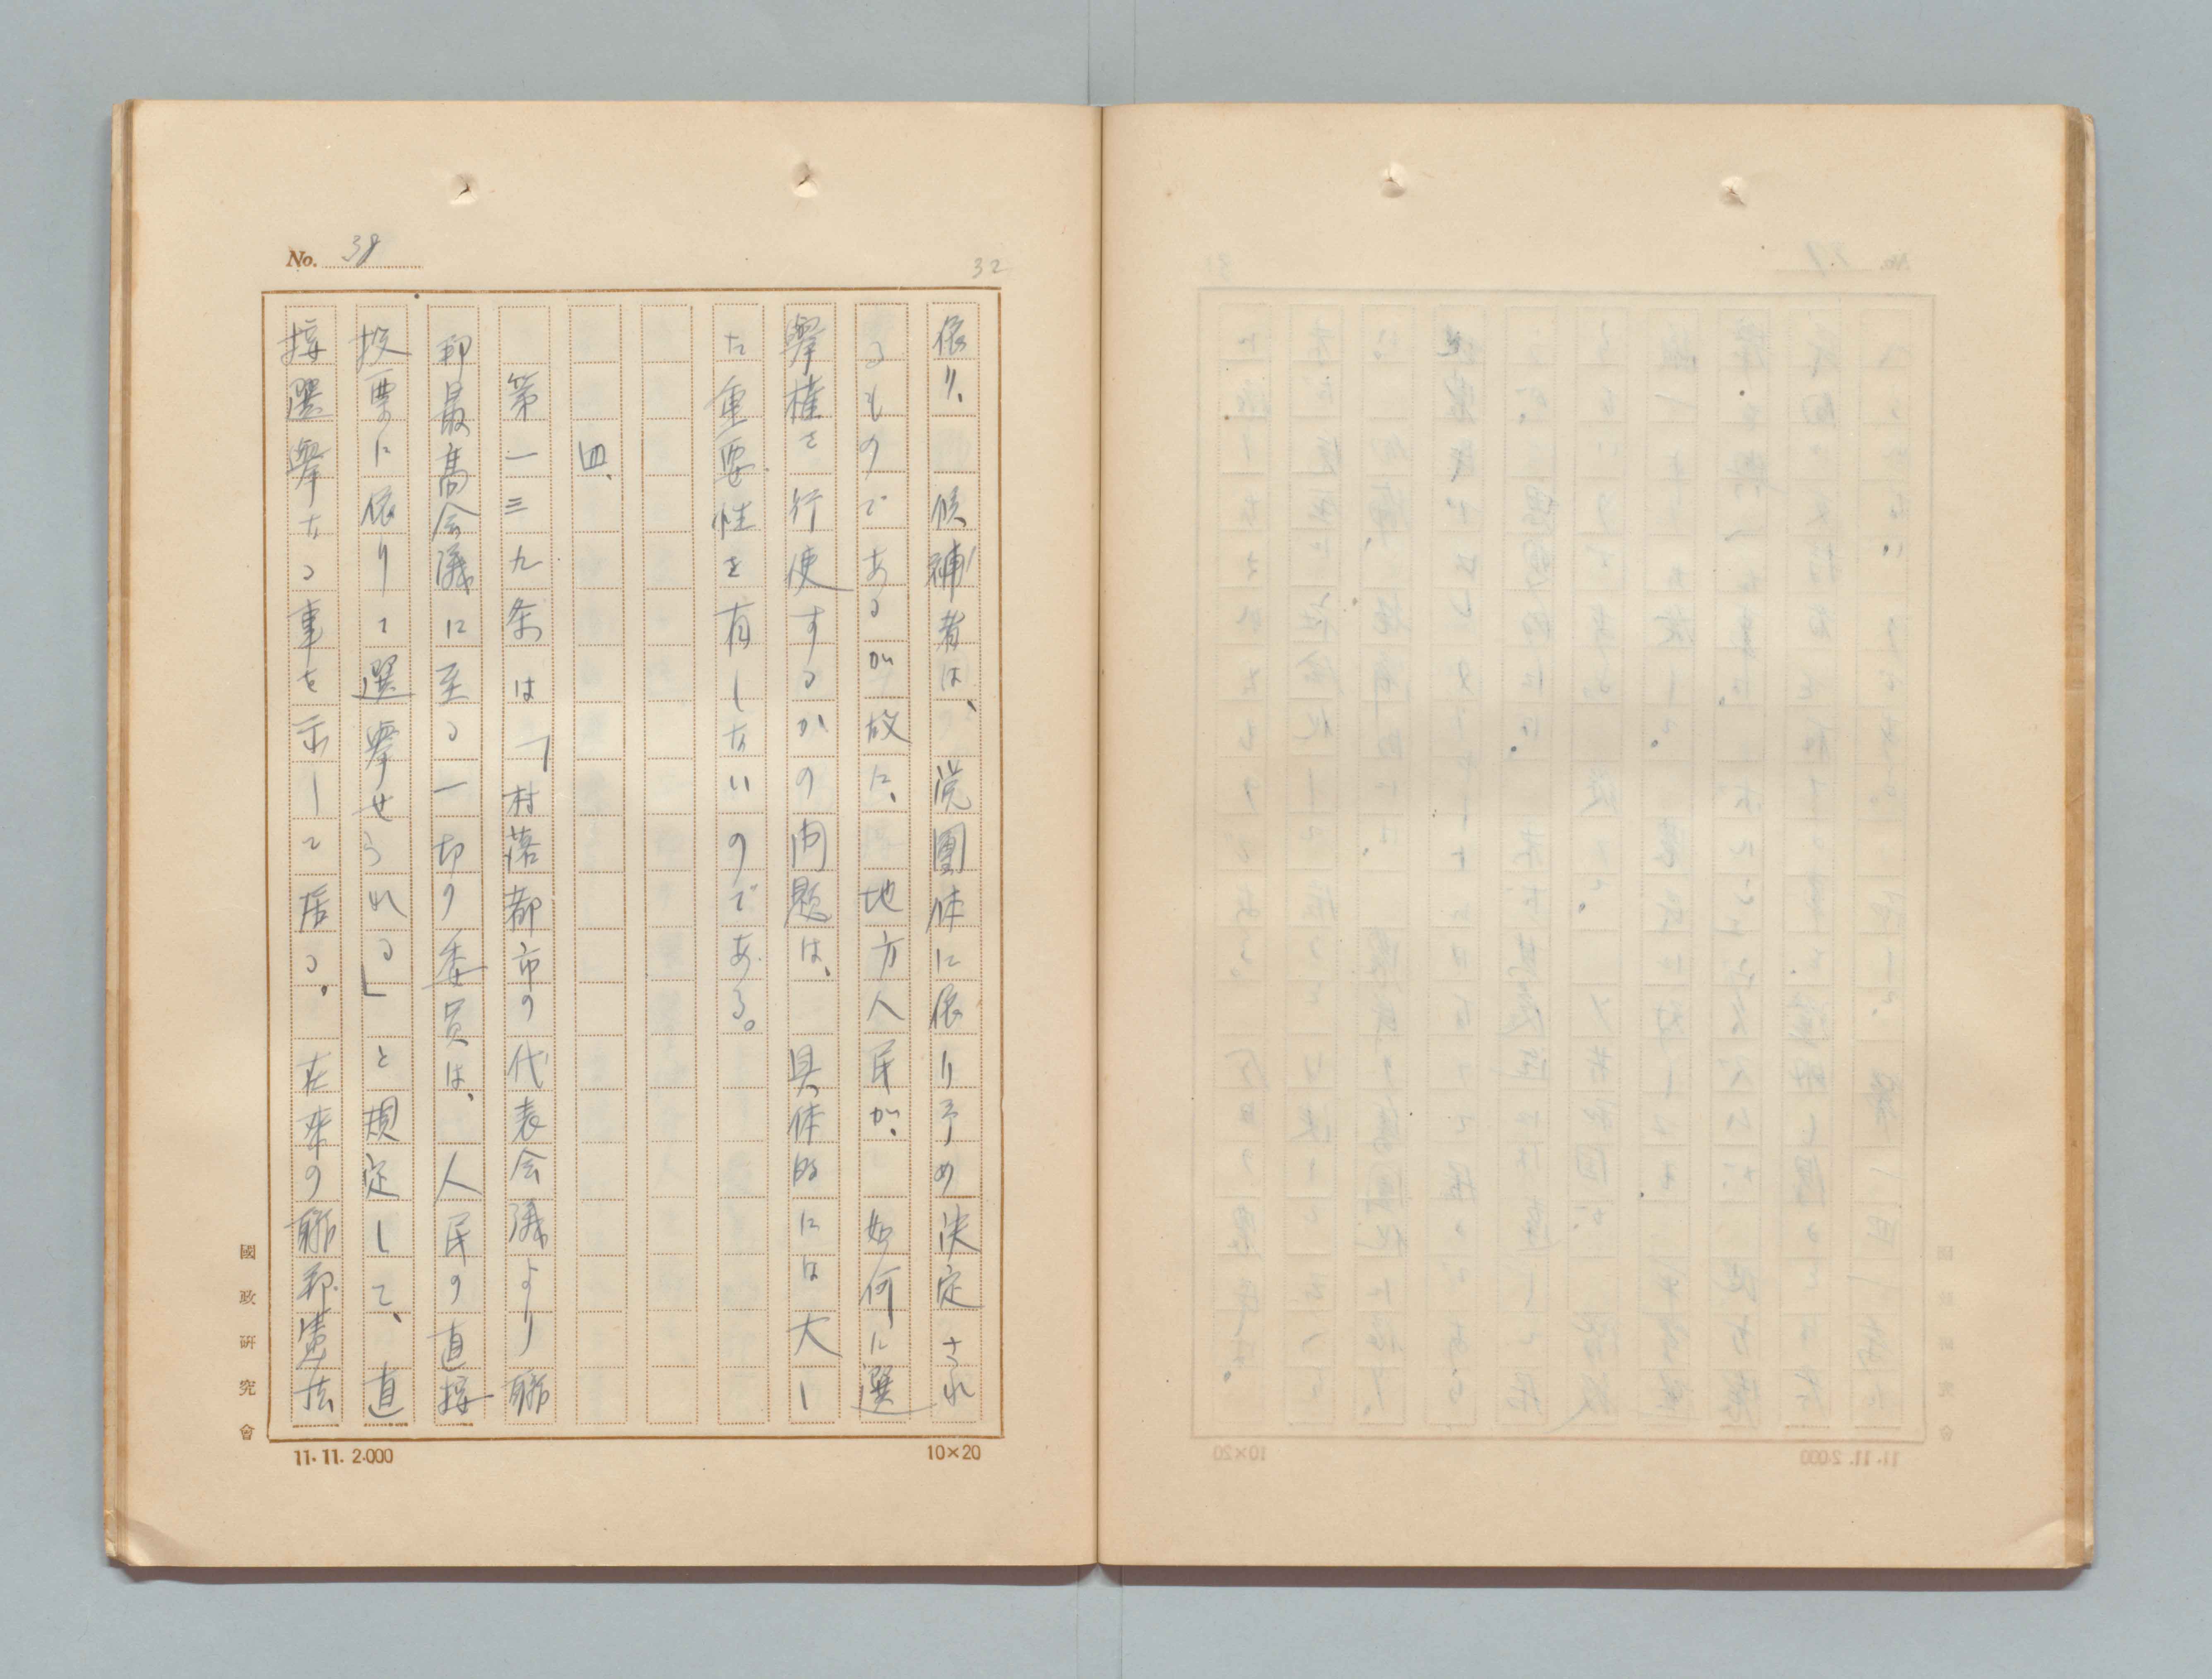 No. 38
32
依り、 候補者は、党團体に依り予め決定され
るものであるが故に、 地方人民が、 如何に選
擧権を行使するかの問題は、 具体的には大し
た重要性を有しないのである。
四、
第一三九条は「村落都市の代表会議より聯
邦最高会議に至る一切の委員は、 人民の直接
投票に依りて選擧せられる」と規定して、直
接選擧なる事を示して居る。 在来の聯邦憲法
國政研究會
11.11.2.000
10×20